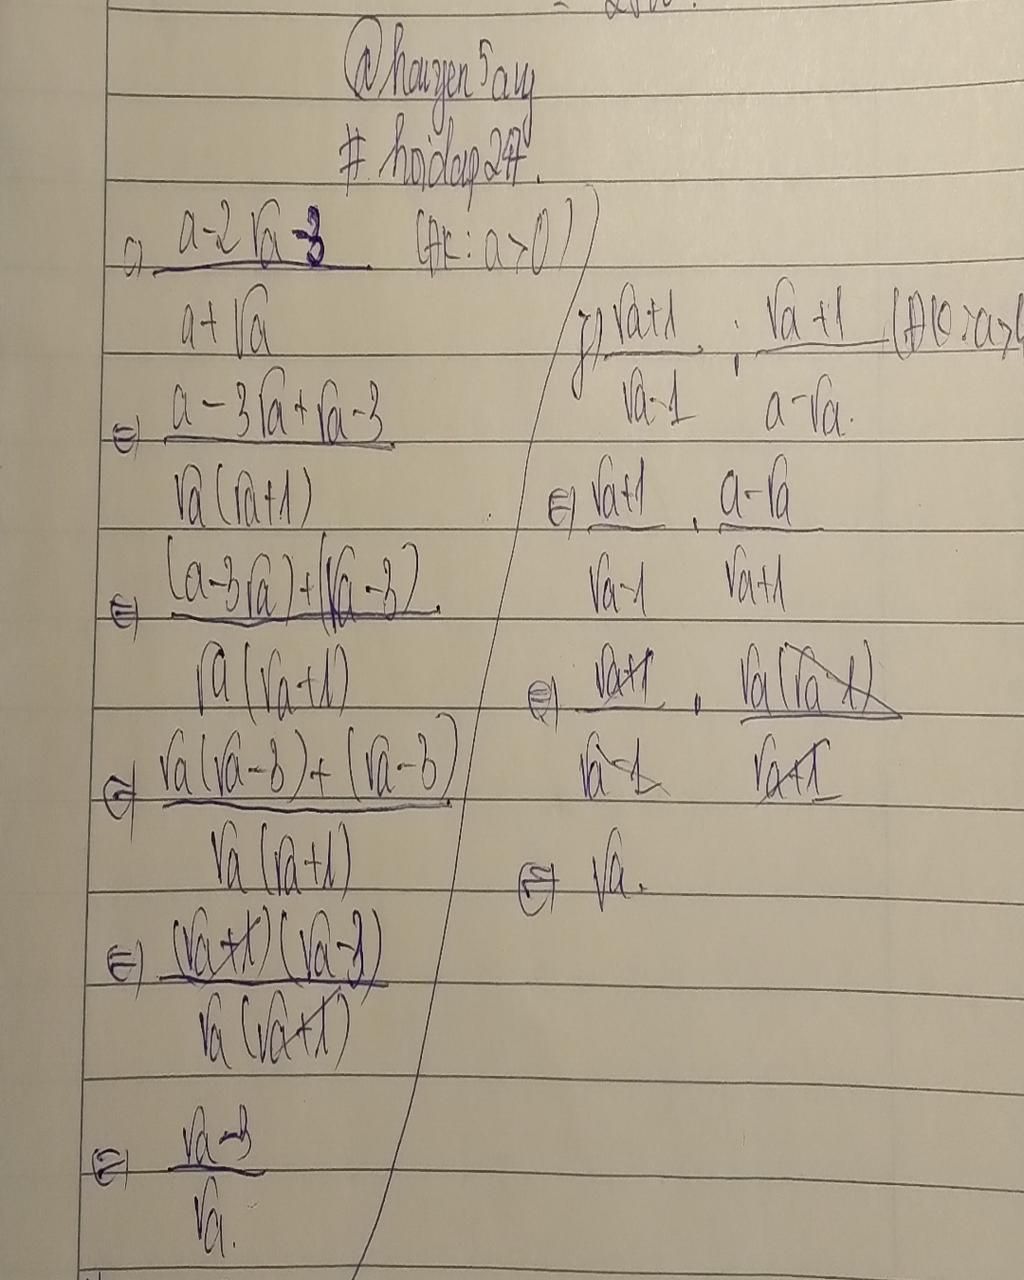 @houyen5aug
# hoidap247.
a-2√a-3 (ĐK: a>0)
a+√a
⇔ a-3√a+√a-3
√a(√a+1)
⇔ (a-3√a)+(√a-3)
√a(√a+1)
⇔ √a(√a-3)+(√a-3)
√a(√a+1)
⇔ (√a+1)(√a-3)
√a(√a+1)
⇔ √a-3
√a.
√a+1 : √a+1 (ĐK: a>
√a-1 a-√a.
⇔ √a+1 . a-√a
√a-1 √a+1
⇔ √a+1 . √a(√a-1)
√a-1 √a+1
⇔ √a.